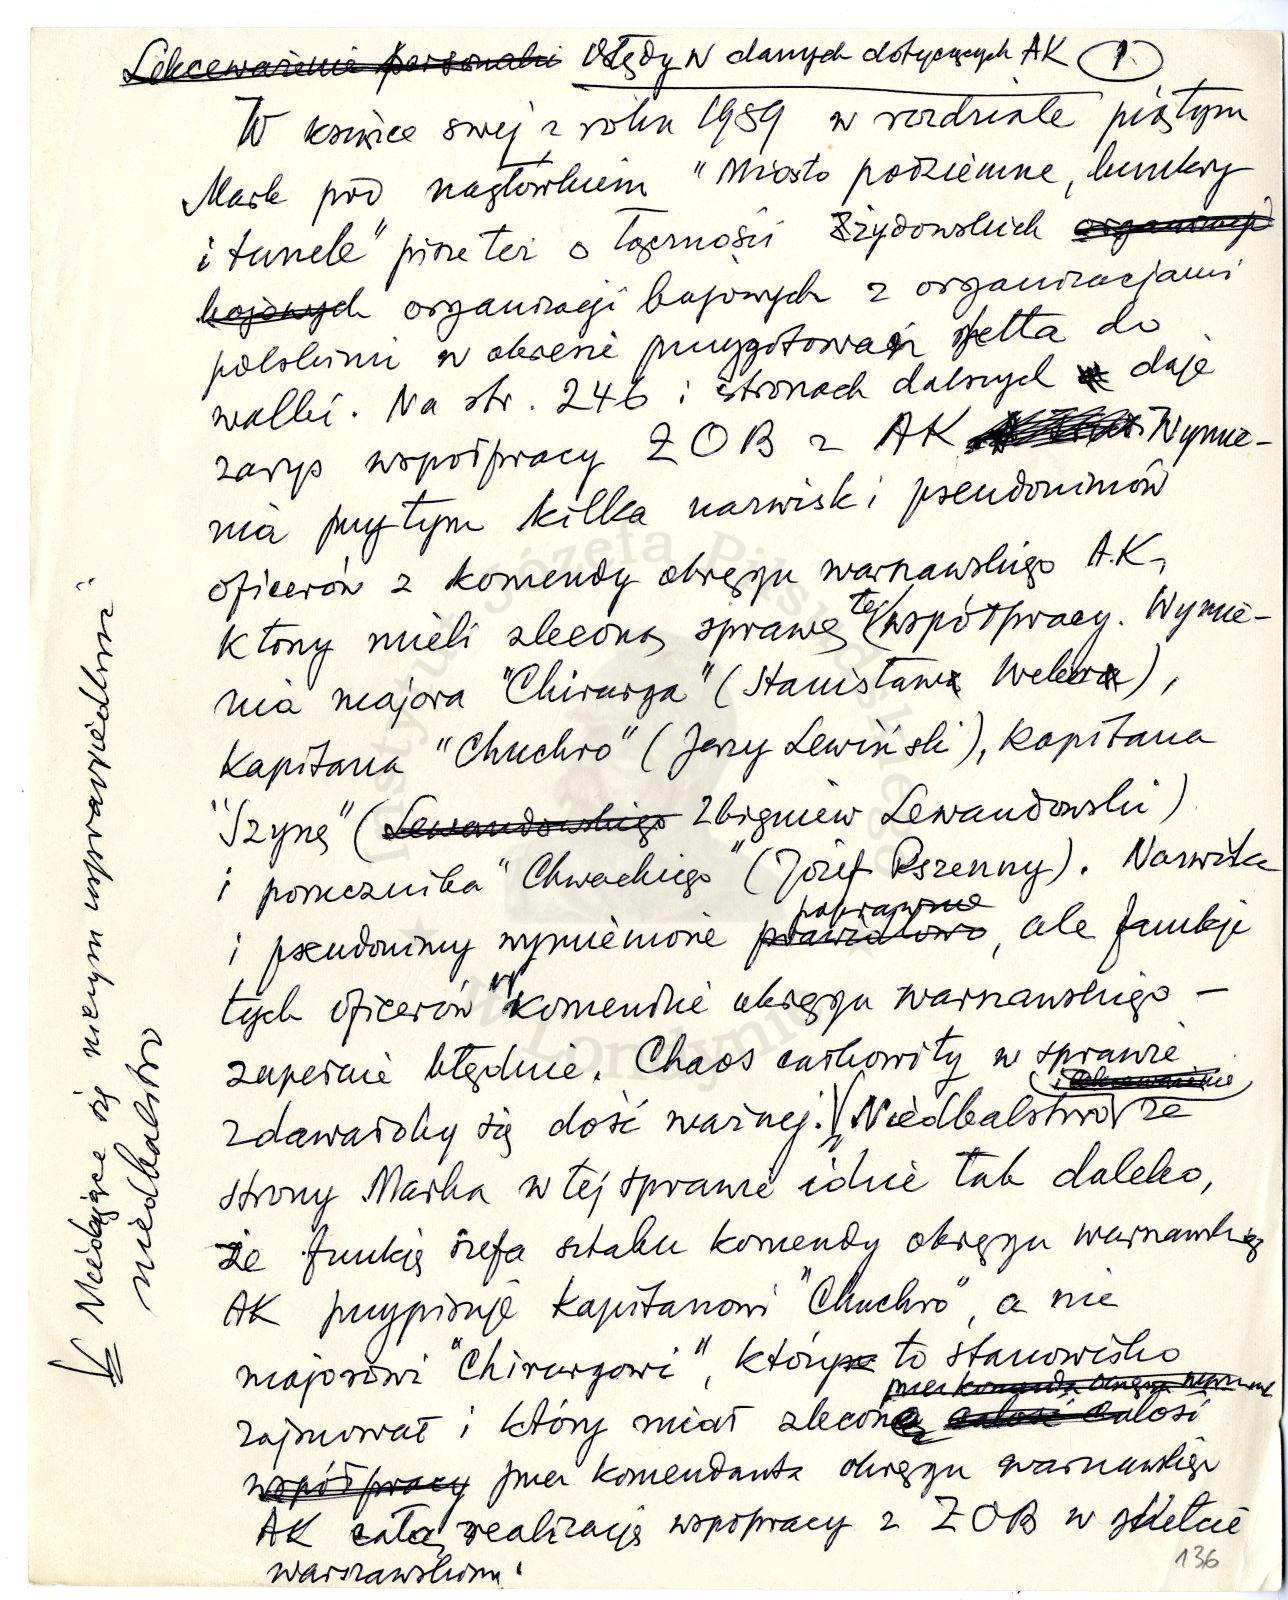 Lekceważenie personalii Błędy w danych dotyczących AK 1.
W książce swej z roku 1989 w rozdziale piątym
Mark pod nagłówkiem "Miasto podziemne, bunkry
i tunele" pisze też o łączności żydowskich organizacji
bojowych organizacji bojowych z organizacjami
polskimi w okresie przygotowań getta do
walki. Na str. 246 i stronach dalszych daje
zarys współpracy ŻOB z AK Wymie-
nia przytym kilka nazwisk i pseudonimów
oficerów z komendy okręgu warszawskiego A.K.,
którzy mieli zleconą sprawę tej współpracy. Wymie-
nia majora "Chirurga" (Stanisław Weber),
kapitana "Chuchro" (Jerzy Lewiński), kapitana
"Szynę" (Lewandowskiego Zbigniew Lewandowski)
i porucznika "Chwackiego" (Józef Pszenny). Nazwiska
i pseudonimy wymienione prawidłowo poprawnie, ale funkcje
tych oficerów w komendzie okręgu warszawskiego –
zupełnie błędnie. Chaos całkowity w sprawie
zdawałoby się dość ważnej. Niedbalstwo i lekceważenie ze
strony Marka w tej sprawie idzie tak daleko,
że funkcję szefa sztabu komendy okręgu warszawskiego
AK przypisuje kapitanowi "Chuchro", a nie
majorowi "Chirurgowi", który to stanowisko
zajmował i który miał zleconą całość całość
współpracy przez komendanta okręgu warszawskiego
AK całą realizację współpracy z ŻOB w getcie
warszawskim.
Niedające się niczym usprawiedliwić
niedbalstwo
136
Instytut Józefa Piłsudskiego
w Londynie